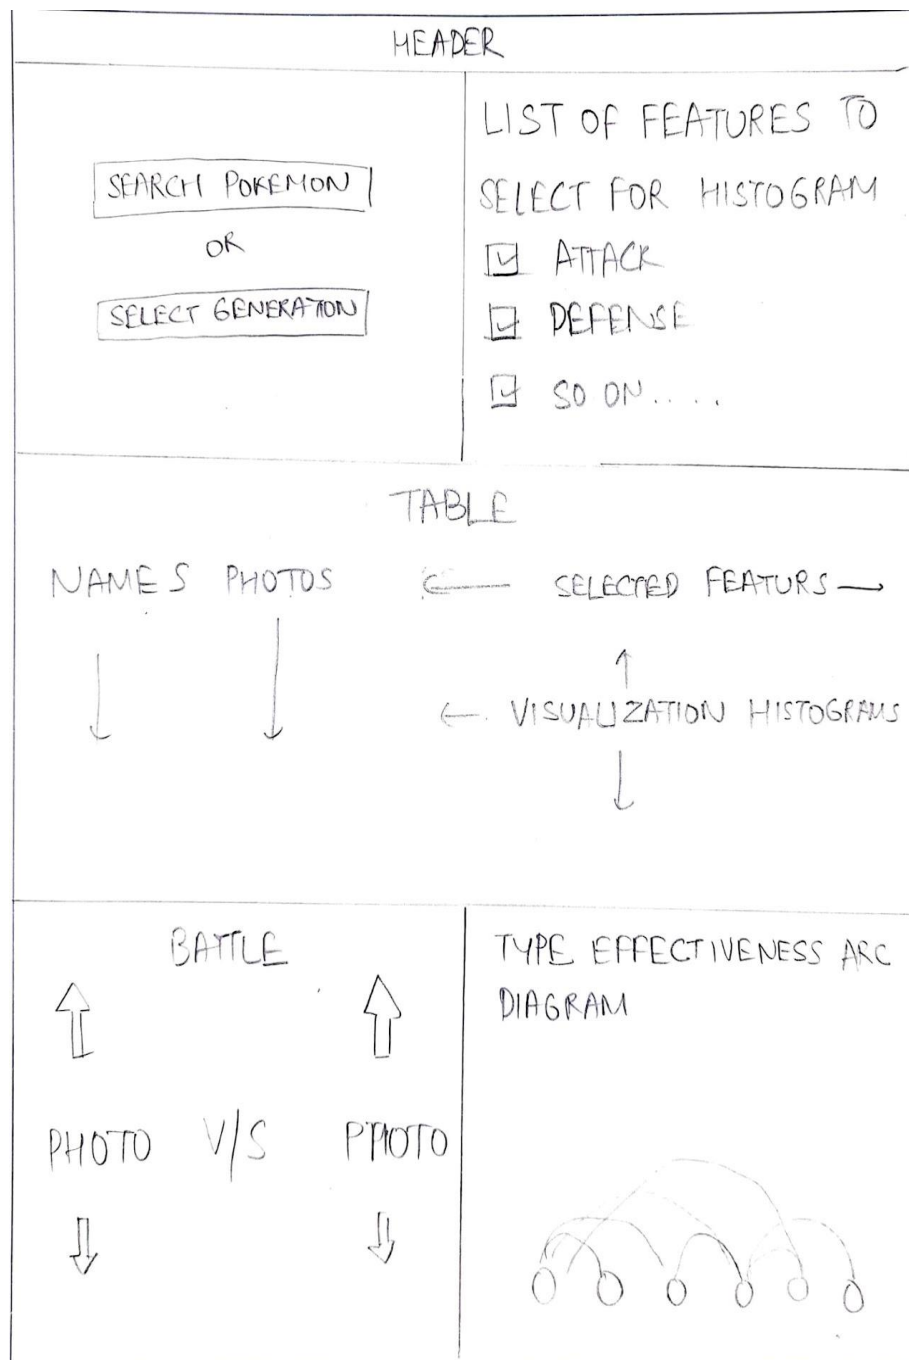 HEADER
SEARCH POKEMON
OR
SELECT GENERATION
LIST OF FEATURES TO
SELECT FOR HISTOGRAM
ATTACK
DEFENSE
SO ON.....
TABLE
NAMES PHOTOS SELECTED FEATURS
VISUALIZATION HISTOGRAMS
BATTLE
PHOTO V/S PHOTO
TYPE EFFECTIVENESS ARC
DIAGRAM